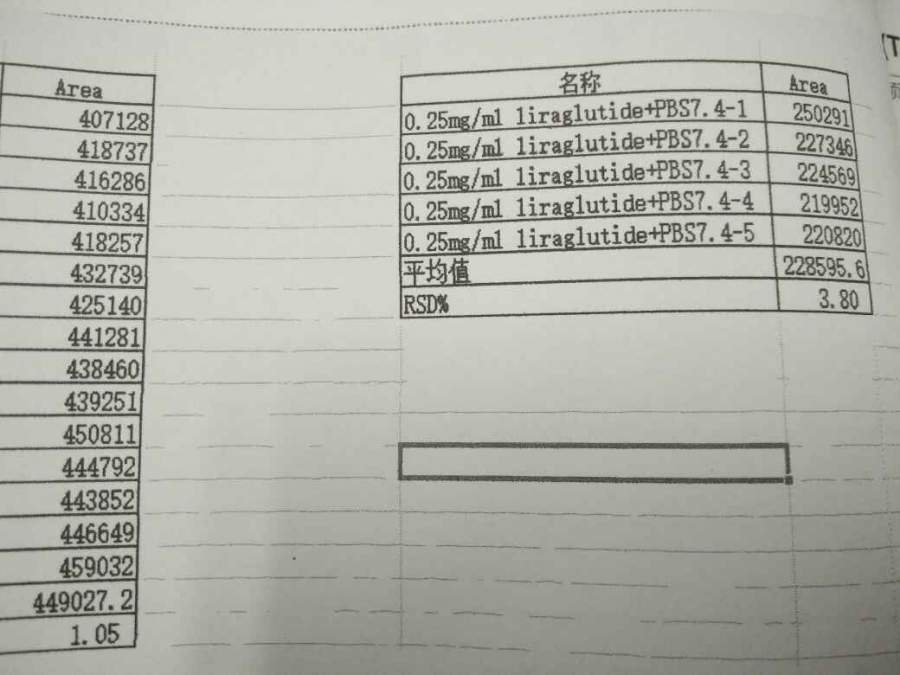 Area
407128
418737
416286
410334
418257
432739
425140
441281
438460
439251
450811
444792
443852
446649
459032
449027.2
1.05
名称 Area
0.25mg/ml liraglutide+PBS7.4-1 250291
0.25mg/ml liraglutide+PBS7.4-2 227346
0.25mg/ml liraglutide+PBS7.4-3 224569
0.25mg/ml liraglutide+PBS7.4-4 219952
0.25mg/ml liraglutide+PBS7.4-5 220820
平均值 228595.6
RSD% 3.80